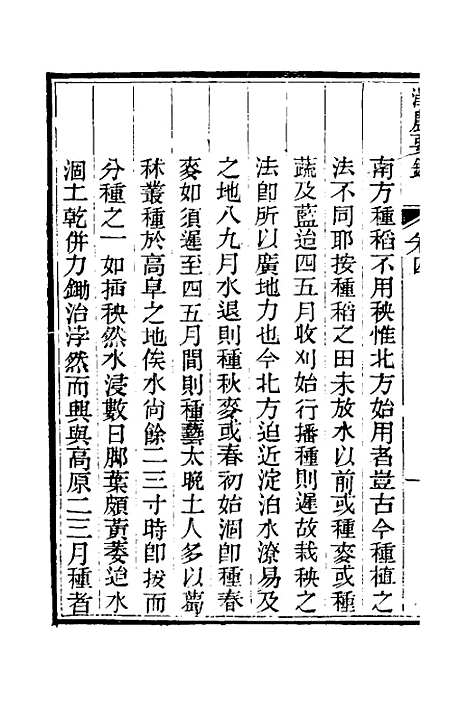 南方種稻不用秧惟北方始用者豈古今種植之
法不同耶按種稻之田未放水以前或種麥或種
蔬及藍迨四五月收刈始行播種則遲故栽秧之
法卽所以廣地力也今北方迫近淀泊水潦易及
之地八九月水退則種秋麥或春初始涸卽種春
麥如須遲至四五月間則種藝太晚土人多以蔔
秫叢種於高阜之地俟水尙餘二三寸時卽拔而
分種之一如插秧然水浸數日脚葉頗黃萎迨水
涸土乾併力鋤治浡然而興與高原二三月種者